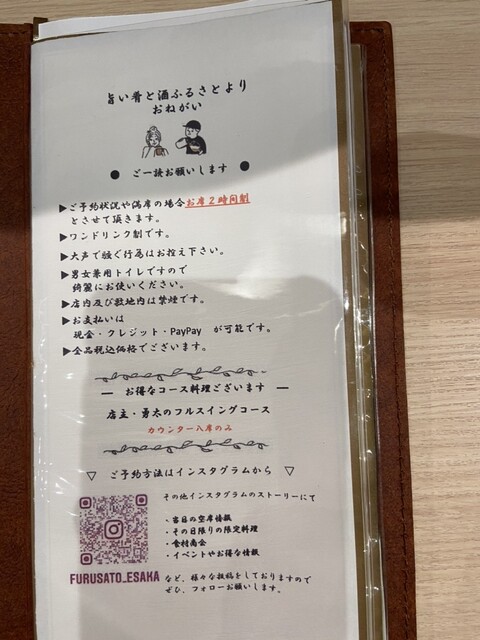 旨い肴と酒ふるさとより
おねがい
● ご一読お願いします ●
▶ご予約状況や満席の場合お席２時間制
とさせて頂きます。
▶ワンドリンク制です。
▶大声で騒ぐ行為はお控え下さい。
▶男女兼用トイレですので
綺麗にお使いください。
▶店内及び敷地内は禁煙です。
▶お支払いは
現金・クレジット・PayPay が可能です。
▶全品税込価格でございます。
― お得なコース料理ございます ―
店主・勇太のフルスイングコース
カウンター八席のみ
▽ ご予約方法はインスタグラムから ▽
その他インスタグラムのストーリーにて
・当日の空席情報
・その日限りの限定料理
・食材商会
・イベントやお得な情報
FURUSATO_ESAKA
など、様々な投稿をしておりますので
ぜひ、フォローお願いします。